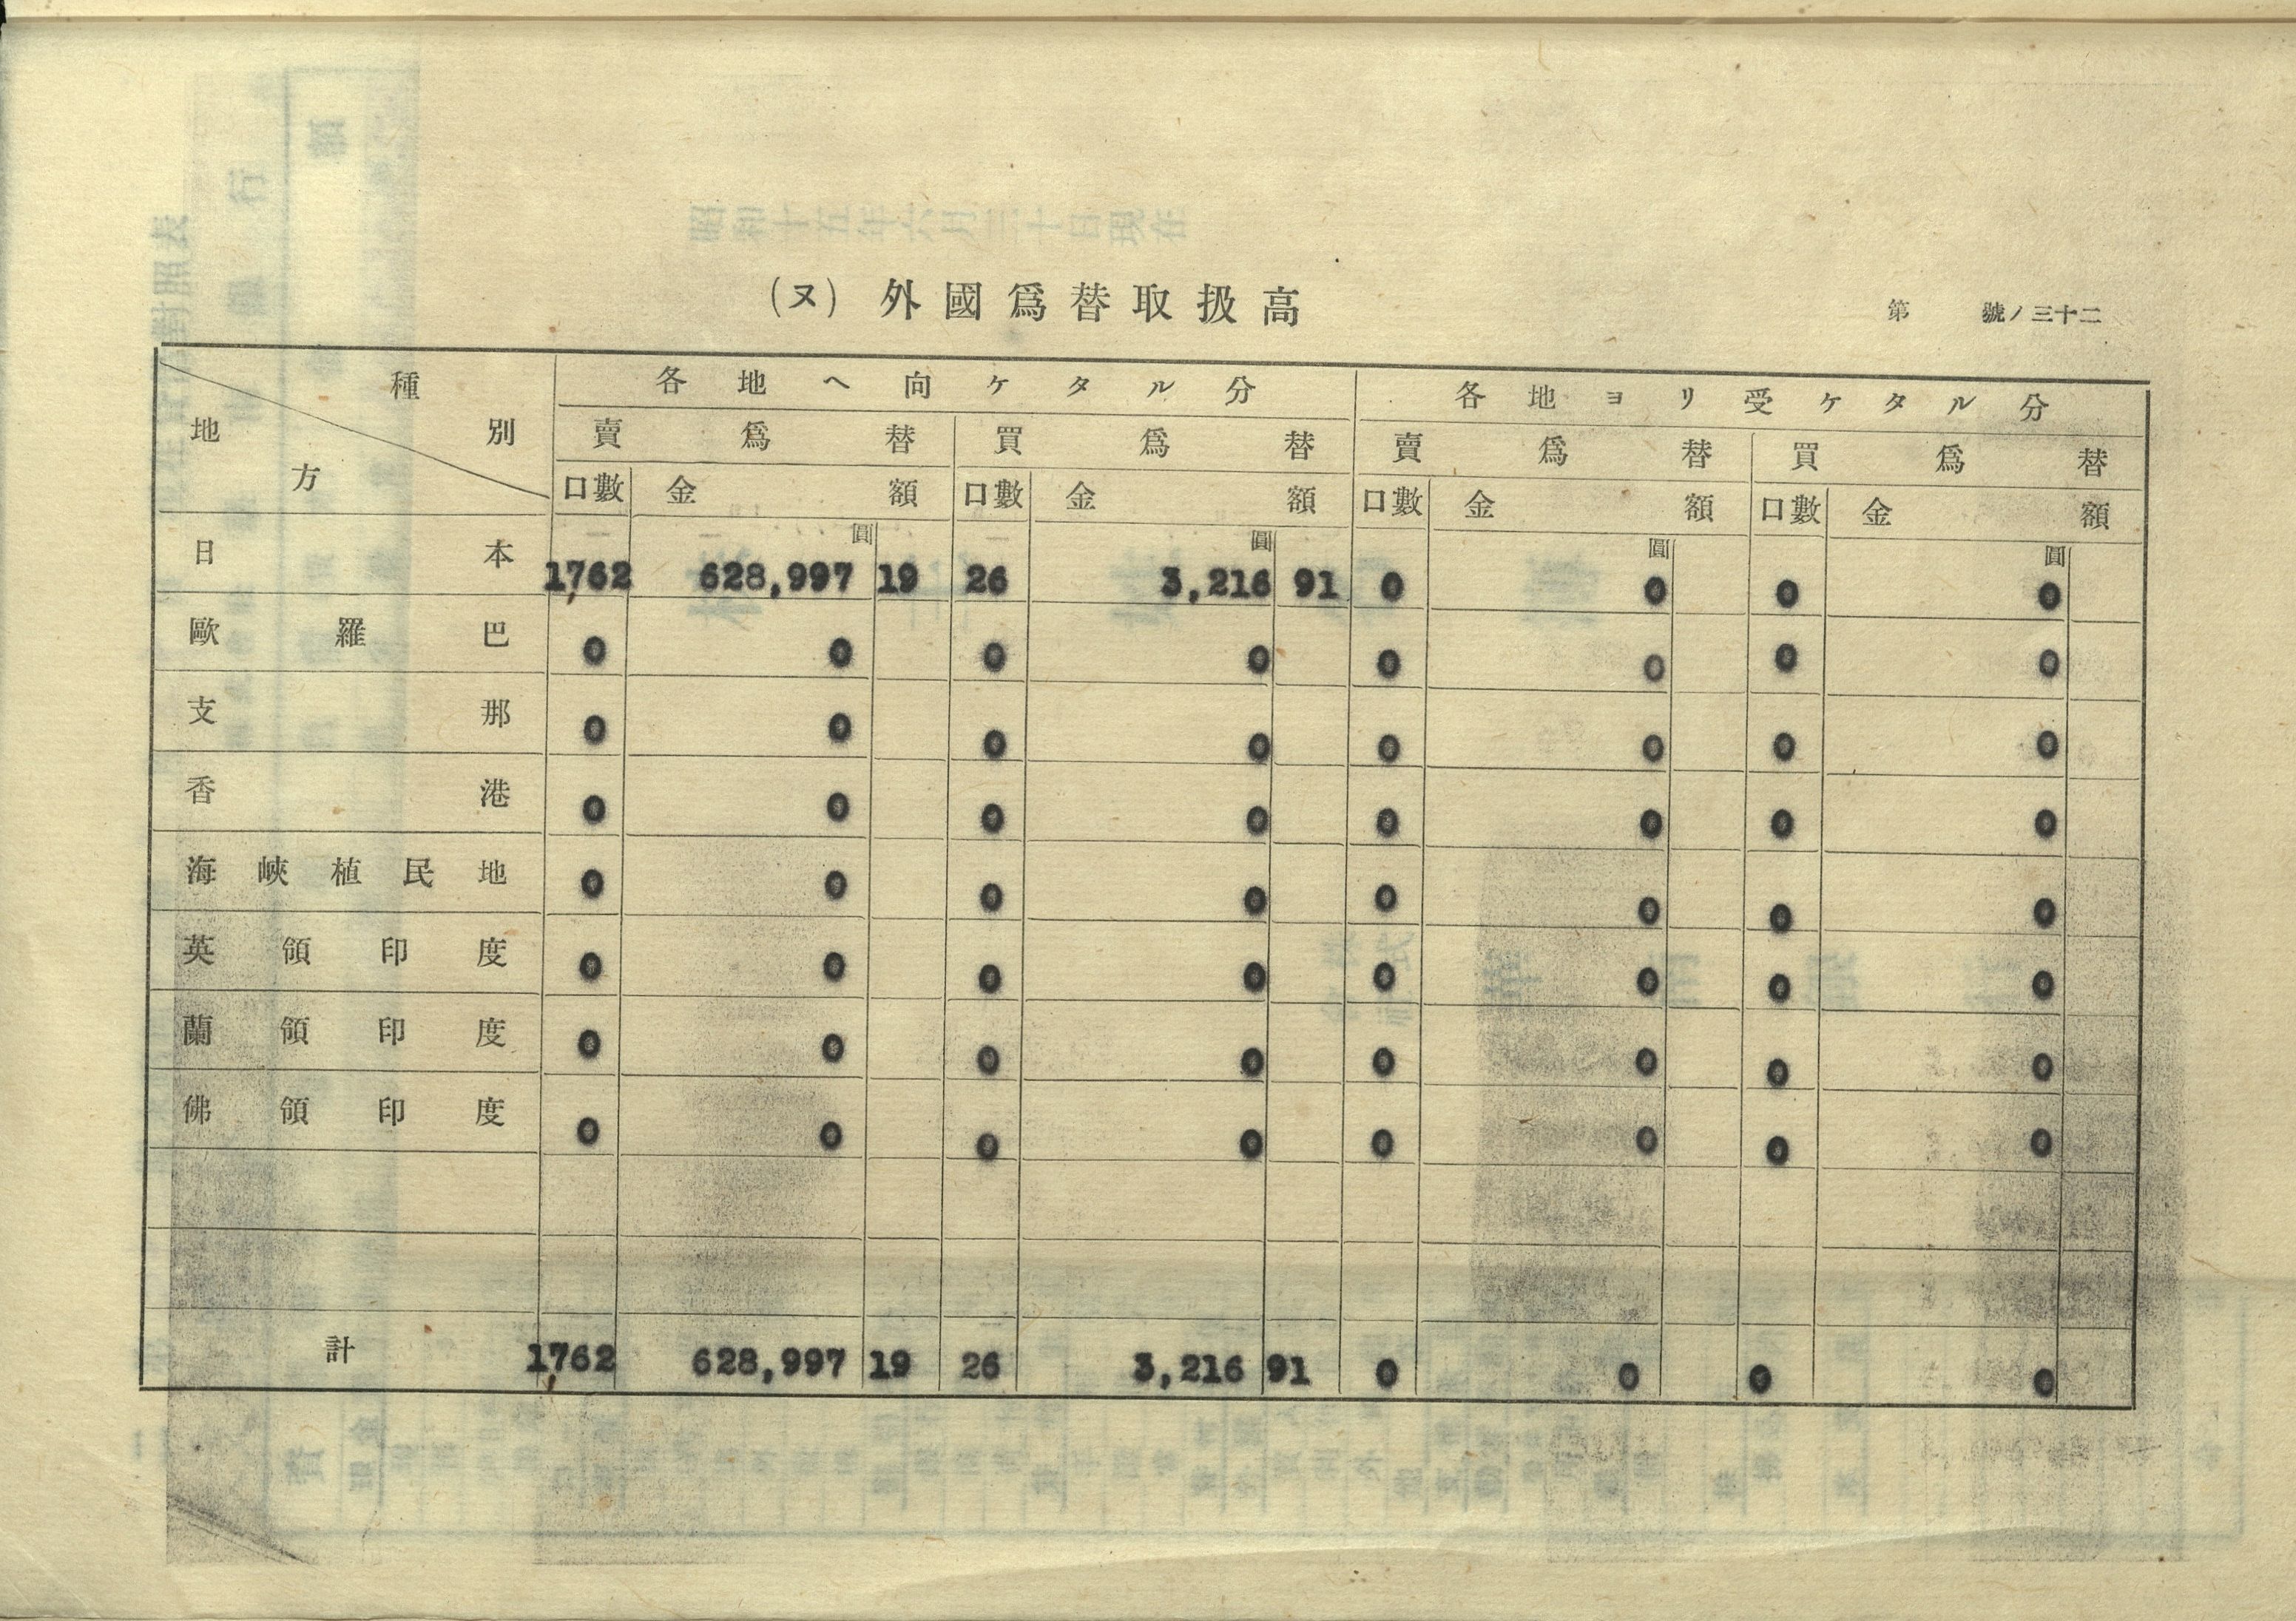 (ヌ) 外國爲替取扱高
第 號ノ三十二
種別 地方 各地ヘ向ケタル分 各地ヨリ受ケタル分
賣爲替 買爲替 賣爲替 買爲替
口數 金額 口數 金額 口數 金額 口數 金額
圓 圓 圓 圓
日本 1,762 628,997 19 26 3,216 91 0 0 0 0
歐羅巴 0 0 0 0 0 0 0 0
支那 0 0 0 0 0 0 0 0
香港 0 0 0 0 0 0 0 0
海峽植民地 0 0 0 0 0 0 0 0
英領印度 0 0 0 0 0 0 0 0
蘭領印度 0 0 0 0 0 0 0 0
佛領印度 0 0 0 0 0 0 0 0
計 1,762 628,997 19 26 3,216 91 0 0 0 0
昭和十五年六月三十日現在